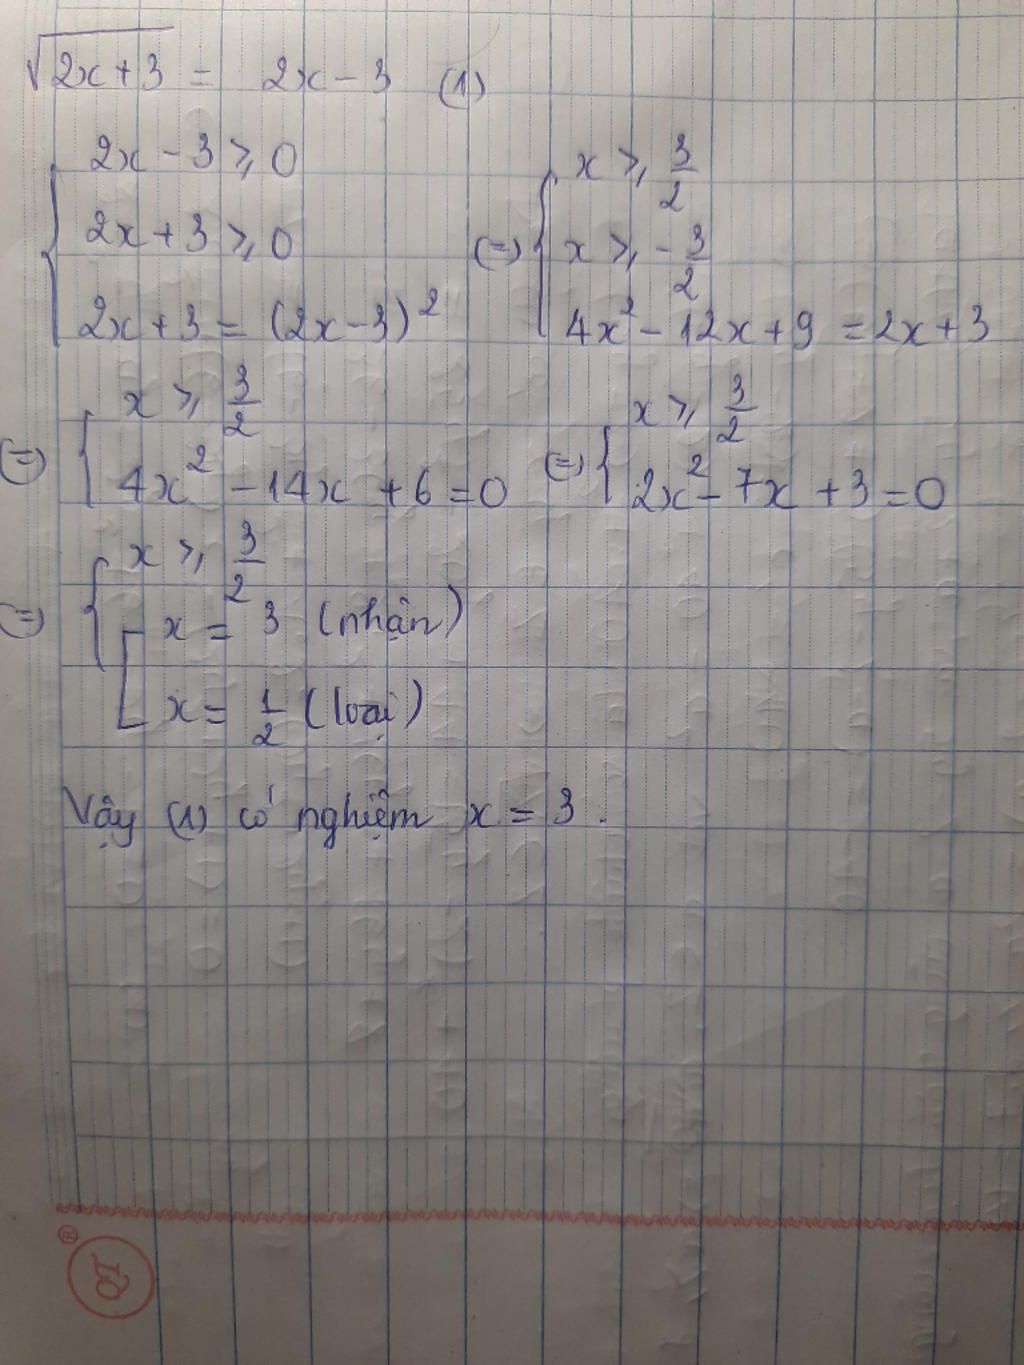 √(2x+3) = 2x-3 (1)
{ 2x-3 ⩾ 0
2x+3 ⩾ 0
2x+3 = (2x-3)²
(=) { x ⩾ 3/2
x ⩾ -3/2
4x²-12x+9 = 2x+3
(=) { x ⩾ 3/2
4x² -14x +6 = 0
(=) { x ⩾ 3/2
2x²-7x +3 = 0
(=) { x ⩾ 3/2
[ x = 3 (nhận)
x = 1/2 (loại)
Vậy (1) có nghiệm x = 3.
®